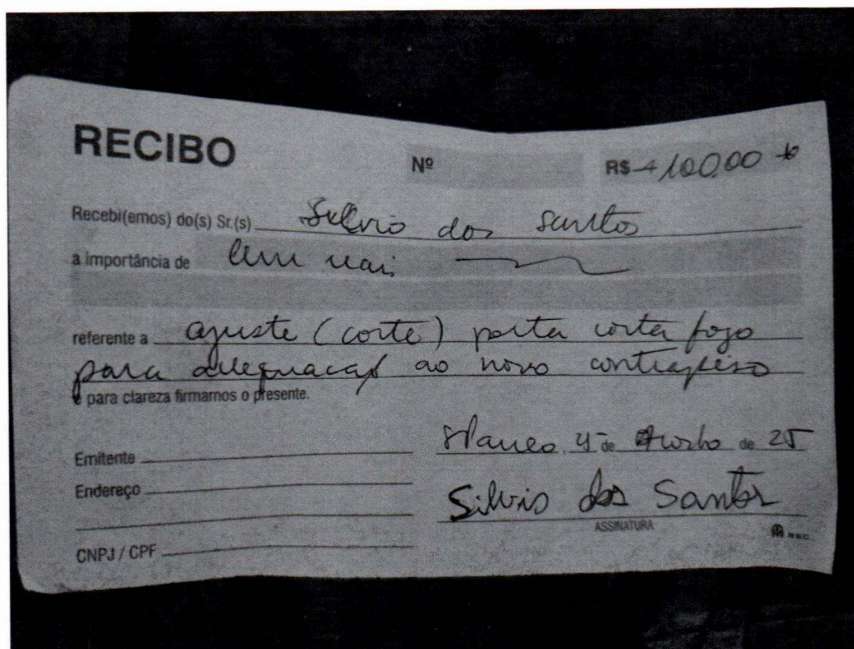 RECIBO
Nº
R$ 100,00
Recebi(emos) do(s) Sr.(s) Silvio dos Santos
a importância de Cem reais
referente a ajuste (corte) porta corta fogo
para adequação ao novo contrapiso
e para clareza firmamos o presente.
4 de de 25
Emitente
Endereço
Silvio dos Santos
ASSINATURA
CNPJ / CPF